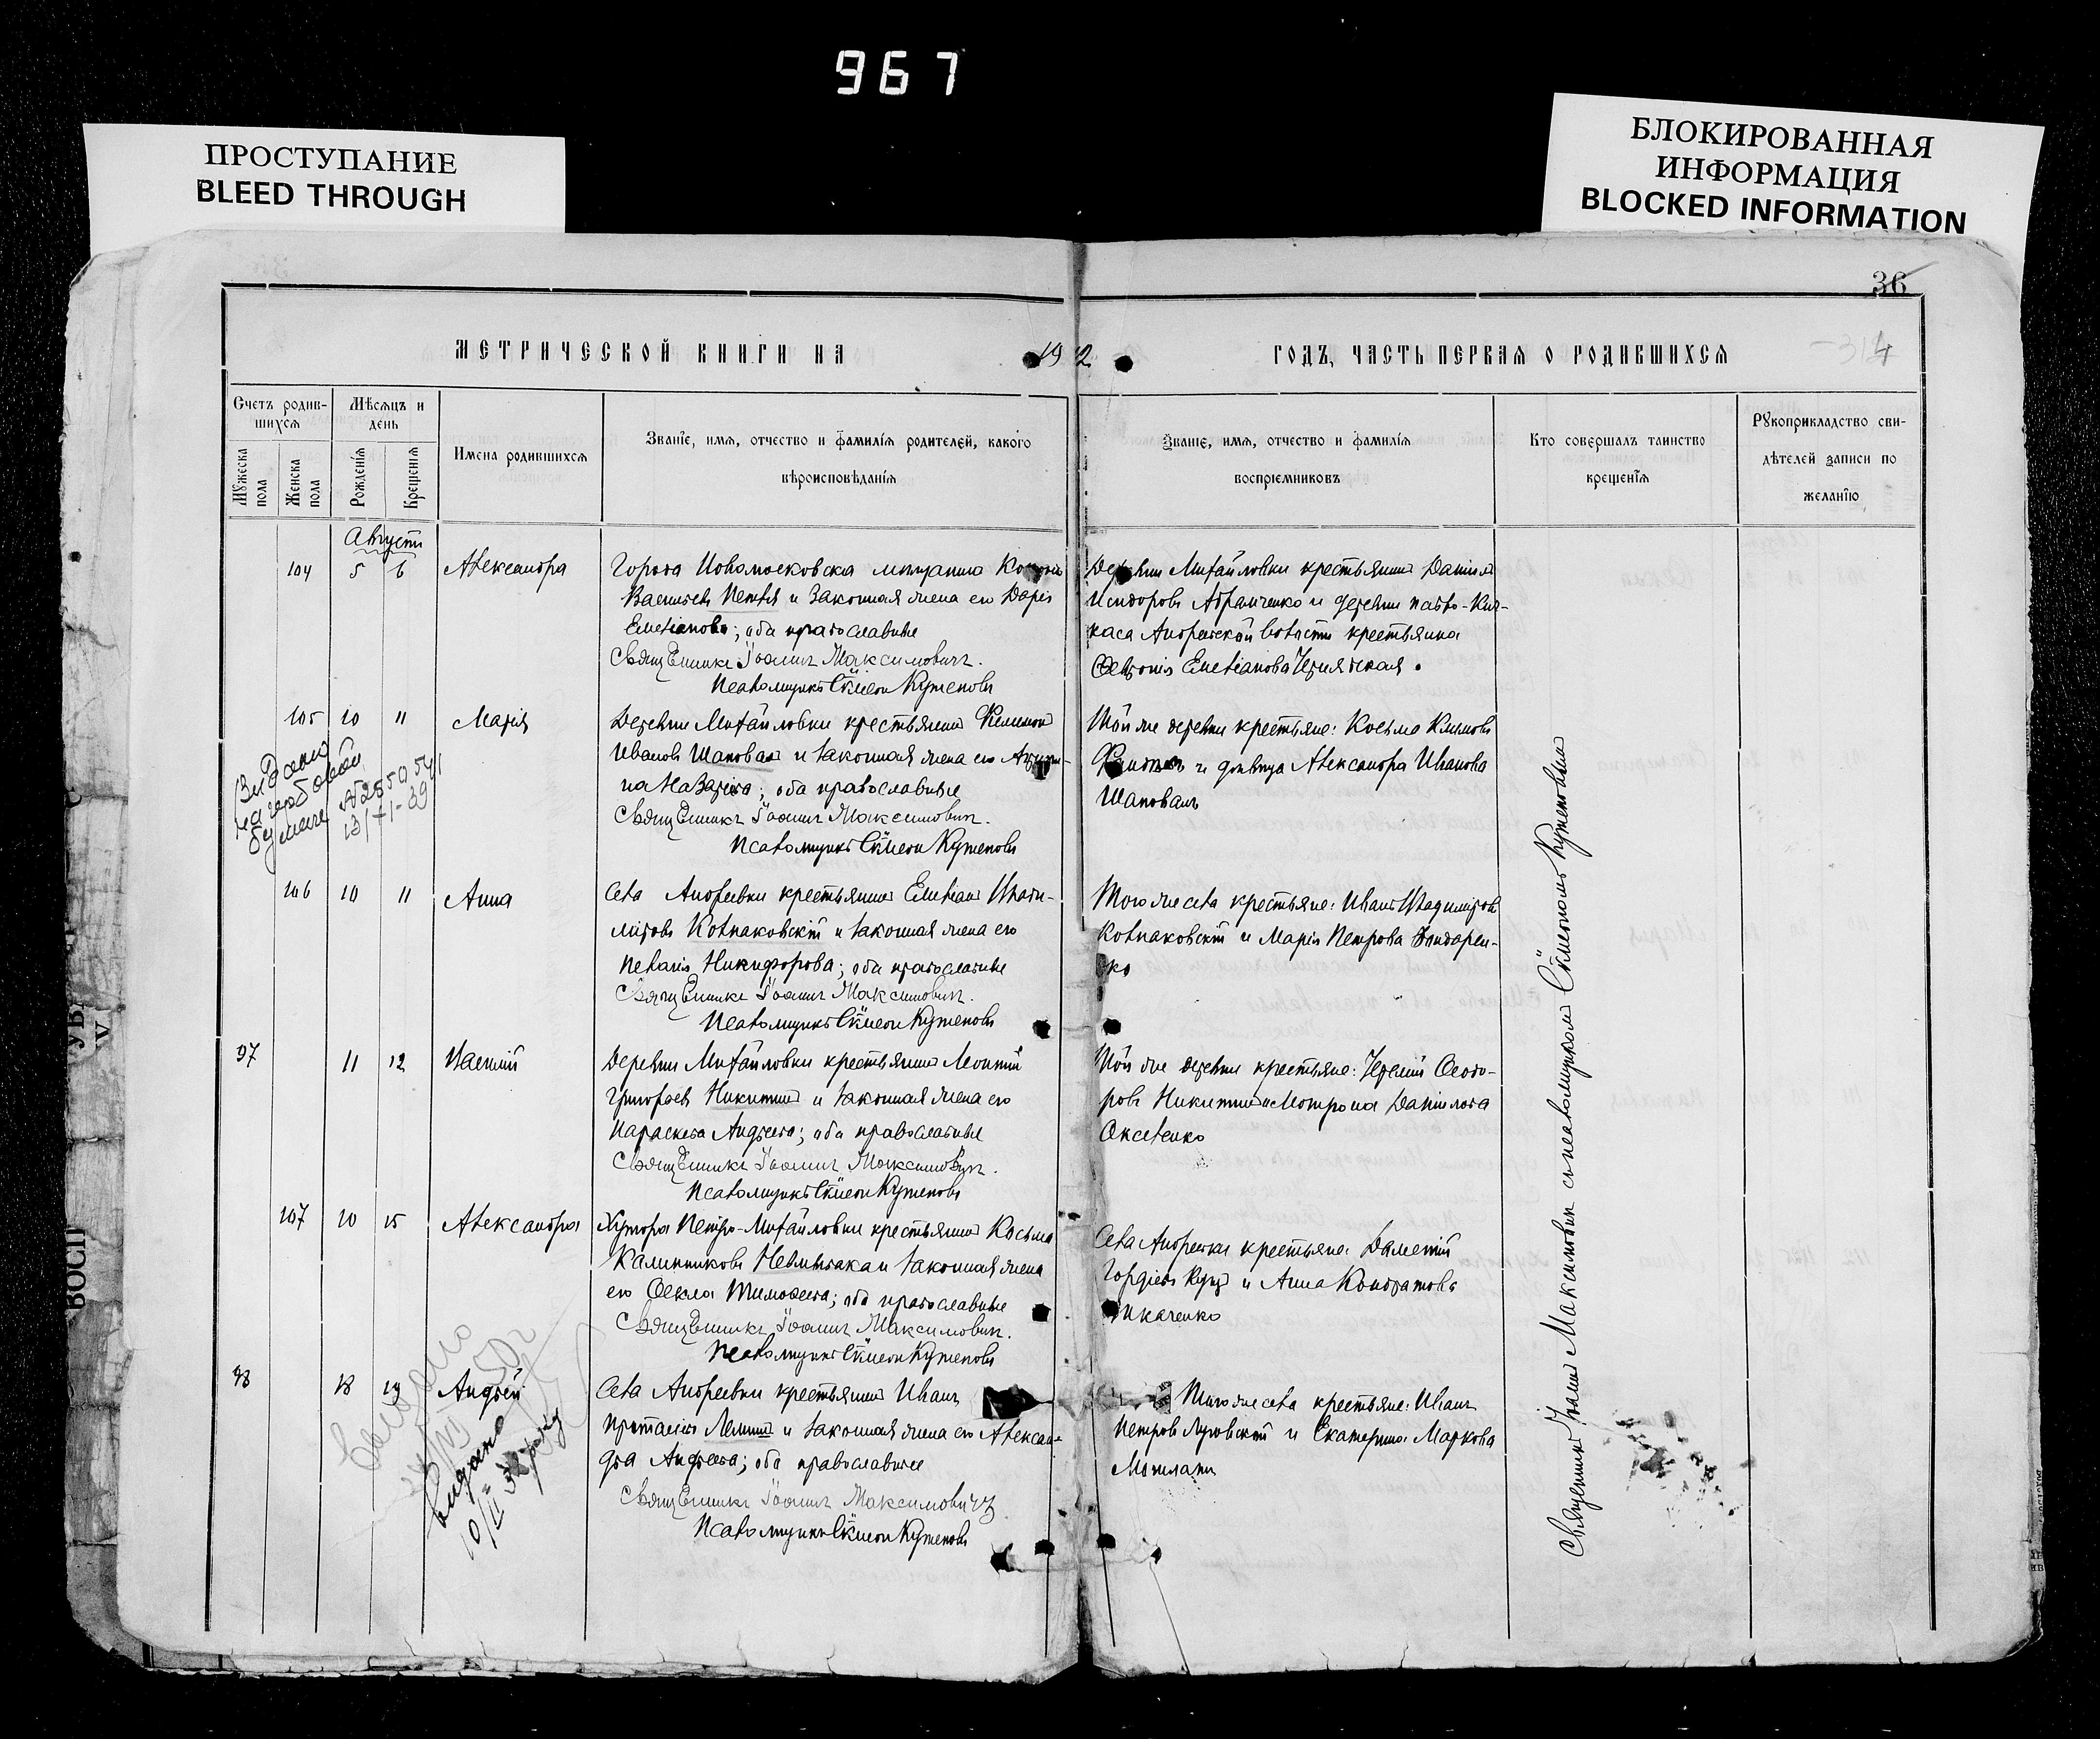 967
ПРОСТУПАНИЕ
BLEED THROUGH
БЛОКИРОВАННАЯ
ИНФОРМАЦИЯ
BLOCKED INFORMATION
36
МЕТРИЧЕСКОЙ КНИГИ НА 1912 ГОДЪ, ЧАСТЬ ПЕРВАЯ О РОДИВШИХСЯ
314
Счетъ родив-
шихся
Мѣсяцъ и
день
Мужеска пола
Женска пола
Рожденія
Крещенія
Имена родившихся
Званіе, имя, отчество и фамилія родителей, какого
вѣроисповѣданія
Званіе, имя, отчество и фамилія
воспріемниковъ
Кто совершалъ таинство
крещенія
Рукоприкладство сви-
дѣтелей записи по
желанію
Августъ
104 5 6 Александра
Города Новомосковска мѣщанинъ
Васильевъ и законная жена его Дарія
Емеліанова; оба православные
Священникъ Іоаннъ Максимовичъ.
Псаломщикъ Сѵмеонъ Кутеповъ
Деревни Михайловки крестьянинъ Даніилъ
Исидоровъ Абраменко и деревни
Андреевской волости крестьянка
Февронія Емеліанова
105 10 11 Марія
Деревни Михайловки крестьянинъ Филимонъ
Ивановъ Шаповалъ и законная жена его
Назарева; оба православные
Священникъ Іоаннъ Максимовичъ.
Псаломщикъ Сѵмеонъ Кутеповъ
Той же деревни крестьяне: Косьма Климовъ
и дѣвица Александра Иванова
Шаповалъ
Видано
на гербовой
бумаге
106 10 11 Анна
Села Андреевки крестьянинъ Емеліанъ Влади-
міровъ Колпаковскій и законная жена его
Пелагія Никифорова; оба православные
Священникъ Іоаннъ Максимовичъ.
Псаломщикъ Сѵмеонъ Кутеповъ
Того же села крестьяне: Иванъ Владиміровъ
Колпаковскій и Марія Петрова Бондарен-
ко
97 11 12 Василій
Деревни Михайловки крестьянинъ Леонтій
Григорьевъ Никитинъ и законная жена его
Параскева Андреева; оба православные
Священникъ Іоаннъ Максимовичъ.
Псаломщикъ Сѵмеонъ Кутеповъ
Той же деревни крестьяне: Ѳеодо-
ровъ Никитинъ и Мотрона Даніилова
107 10 15 Александра
Хутора Петро-Михайловки крестьянинъ Косьма
Калинниковъ и законная жена
его Ѳекла Тимоѳеева; оба православные
Священникъ Іоаннъ Максимовичъ.
Псаломщикъ Сѵмеонъ Кутеповъ
Села Андреевки крестьяне:
Гордіевъ и Анна Кондратова
Ткаченко
98 18 19 Андрей
Села Андреевки крестьянинъ Иванъ
и законная жена его Алексан-
дра Андреева; оба православные
Священникъ Іоаннъ Максимовичъ
Псаломщикъ Сѵмеонъ Кутеповъ
Того же села крестьяне: Иванъ
Петровъ и Екатерина Маркова
выдано
Священникъ Іоаннъ Максимовичъ съ псаломщикомъ Сѵмеономъ Кутеповымъ